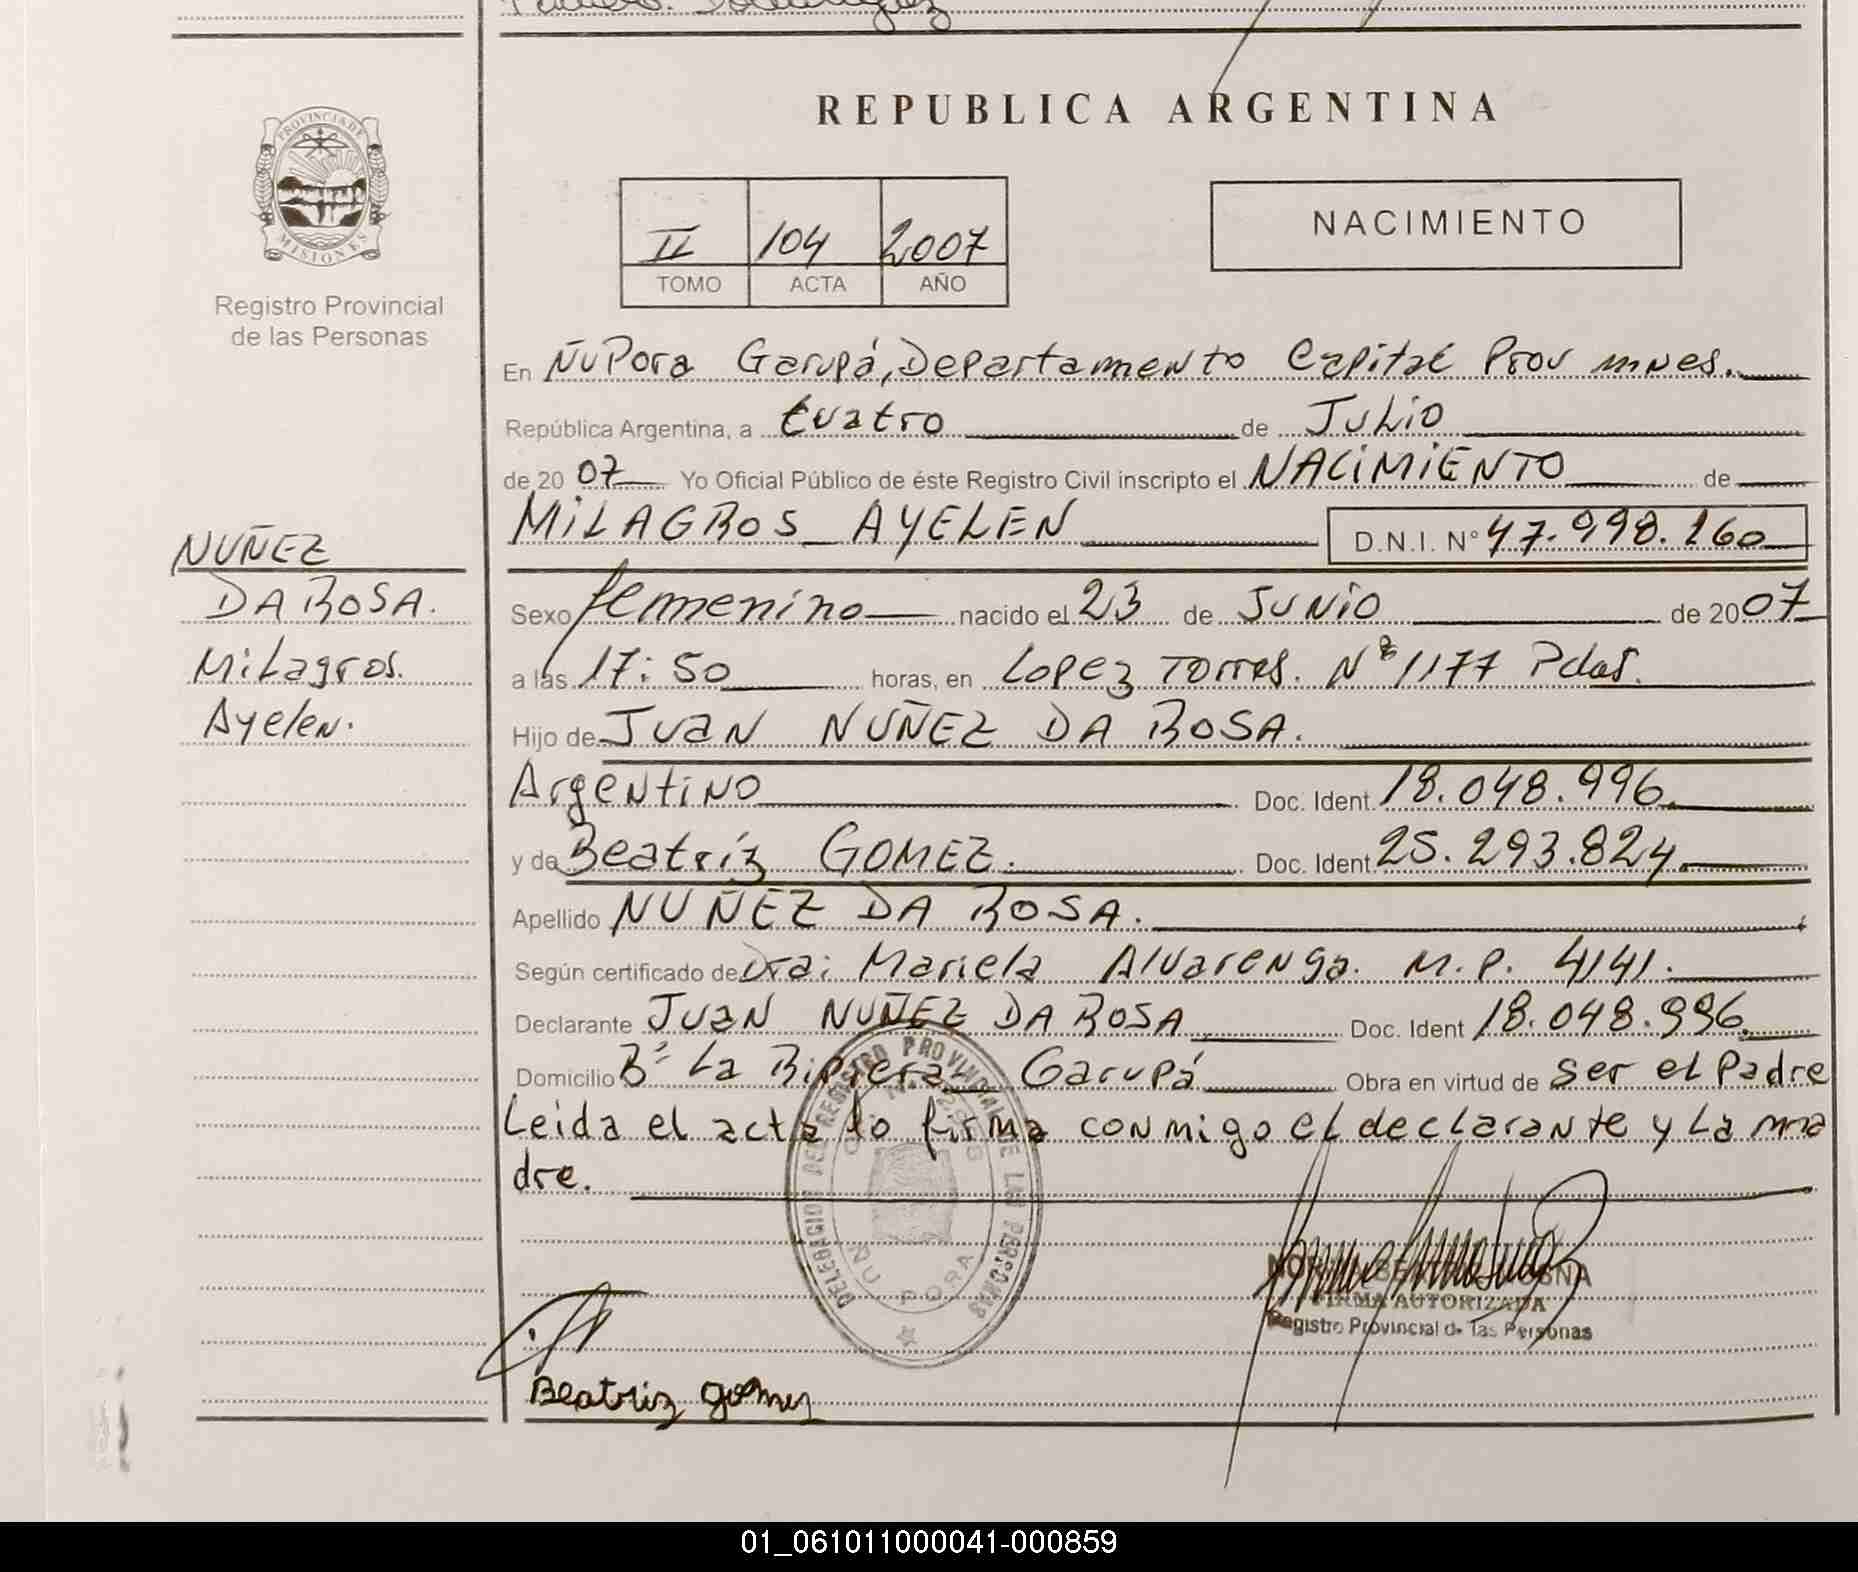 PROVINCIA DE
MISIONES
Registro Provincial
de las Personas
REPUBLICA ARGENTINA
II 104 2007
TOMO ACTA AÑO
NACIMIENTO
En ÑuPora Garupá, Departamento Capital Prov mnes.
República Argentina, a cuatro de Julio
de 2007 Yo Oficial Público de éste Registro Civil inscripto el NACIMIENTO de
MILAGROS AYELEN D.N.I. N° 47.998.160
NUÑEZ
DA ROSA.
Milagros.
Ayelen.
Sexo femenino nacido el 23 de Junio de 2007
a las 17:50 horas, en Lopez Torres. Nº 1177 Pdas.
Hijo de Juan NUÑEZ DA ROSA.
Argentino Doc. Ident 18.048.996.
y de Beatríz GOMEZ. Doc. Ident 25.293.824.
Apellido NUÑEZ DA ROSA.
Según certificado de Dra: Mariela Alvarenga. M.P. 4141.
Declarante Juan NUÑEZ DA ROSA Doc. Ident 18.048.996.
Domicilio Bº La Riviera Garupá Obra en virtud de ser el Padre
Leida el acta lo firma conmigo el declarante y La ma
dre.
DELEGACION DEL REGISTRO PROVINCIAL DE LAS PERSONAS
ÑU PORA
FIRMA AUTORIZADA
Registro Provincial de las Personas
Beatriz gomez
01_061011000041-000859